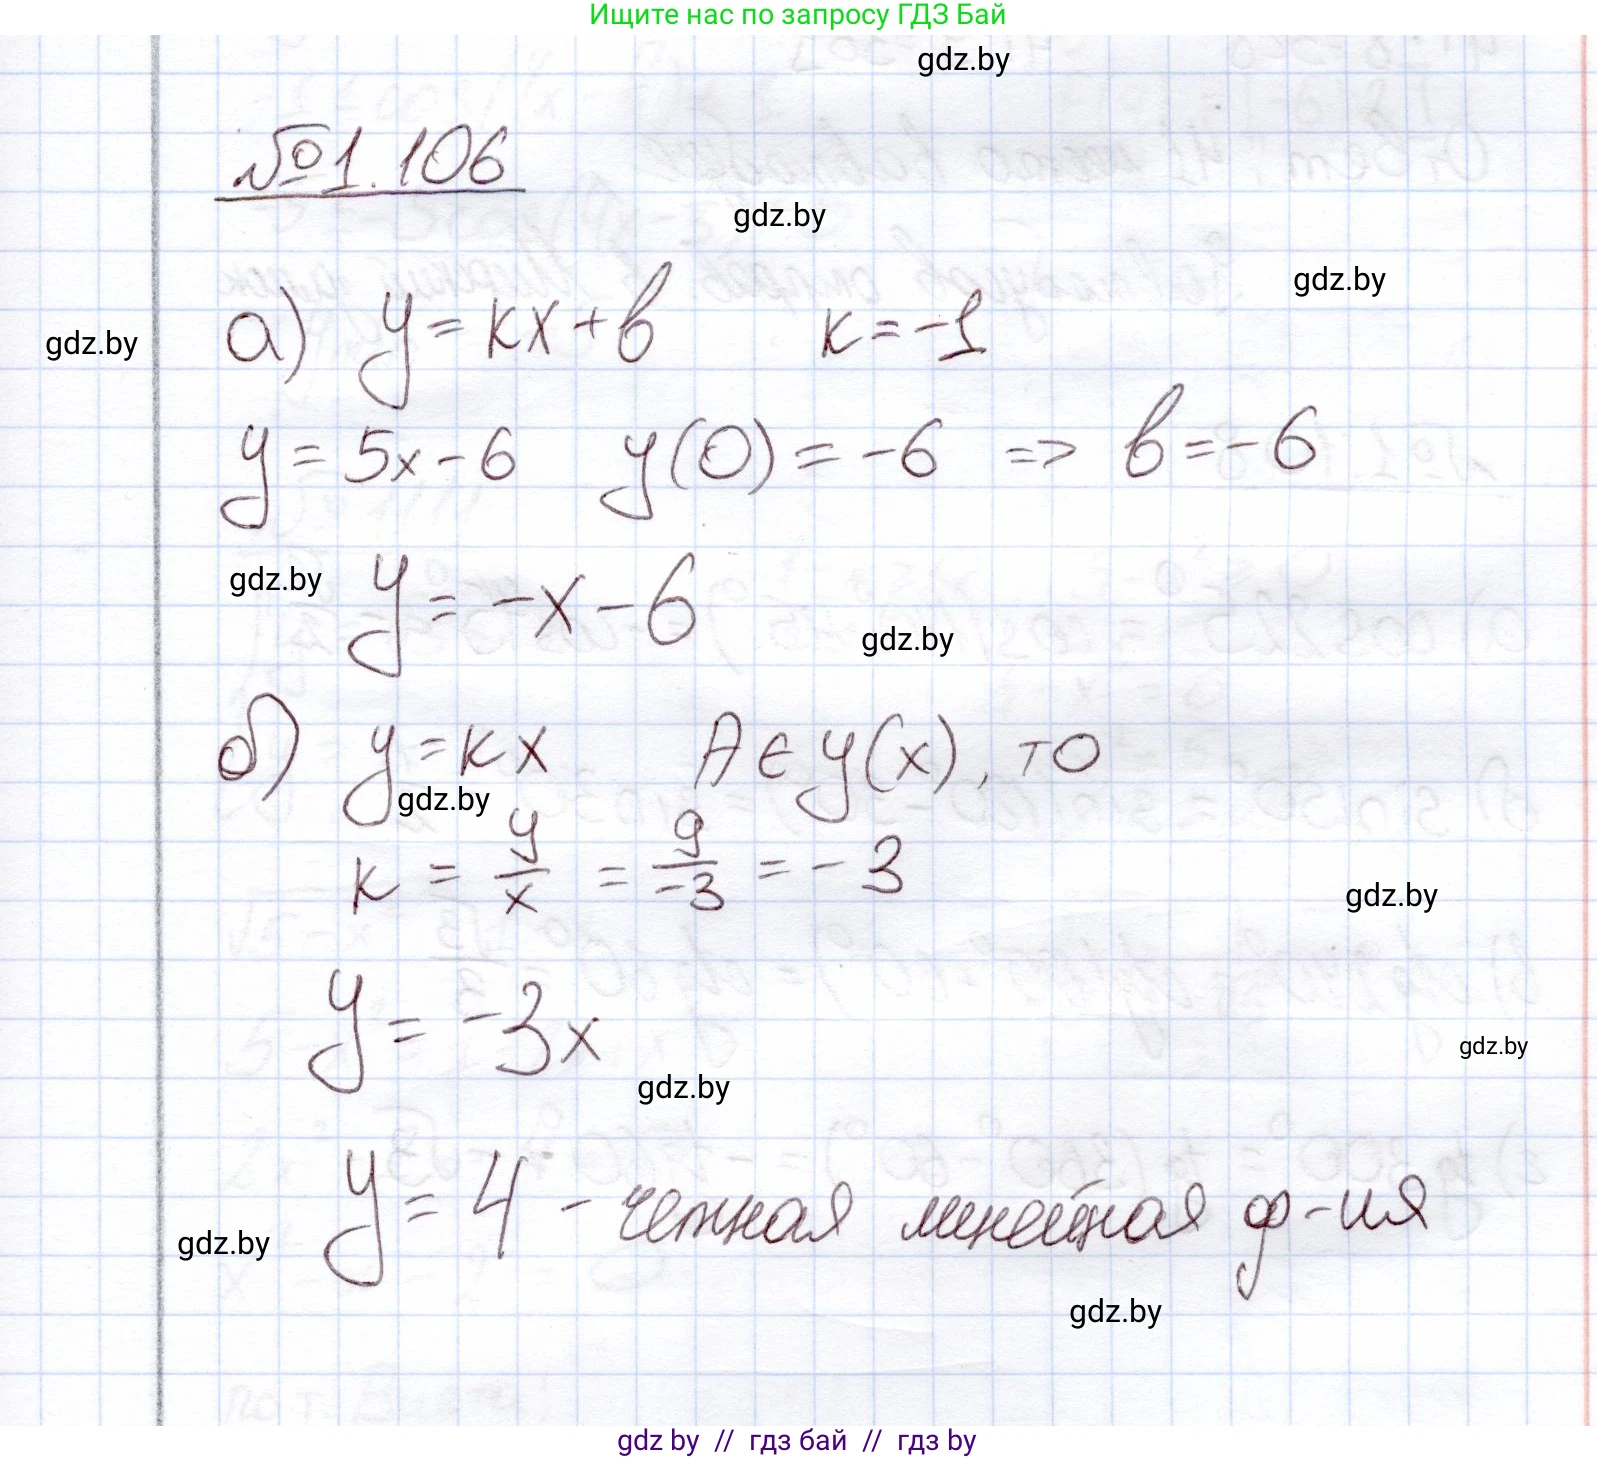 Ищите нас по запросу ГДЗ Бай
gdz.by
№1.106
gdz.by
gdz.by
а) y = kx + b k = -1
gdz.by
y = 5x - 6 y(0) = -6 => b = -6
gdz.by
y = -x - 6
gdz.by
б) y = kx A ∈ y(x), то
gdz.by
k = y/x = 9/-3 = -3
gdz.by
y = -3x
gdz.by
gdz.by
y = 4 - четная линейная ф-ия
gdz.by
gdz.by
gdz by // гдз бай // гдз by